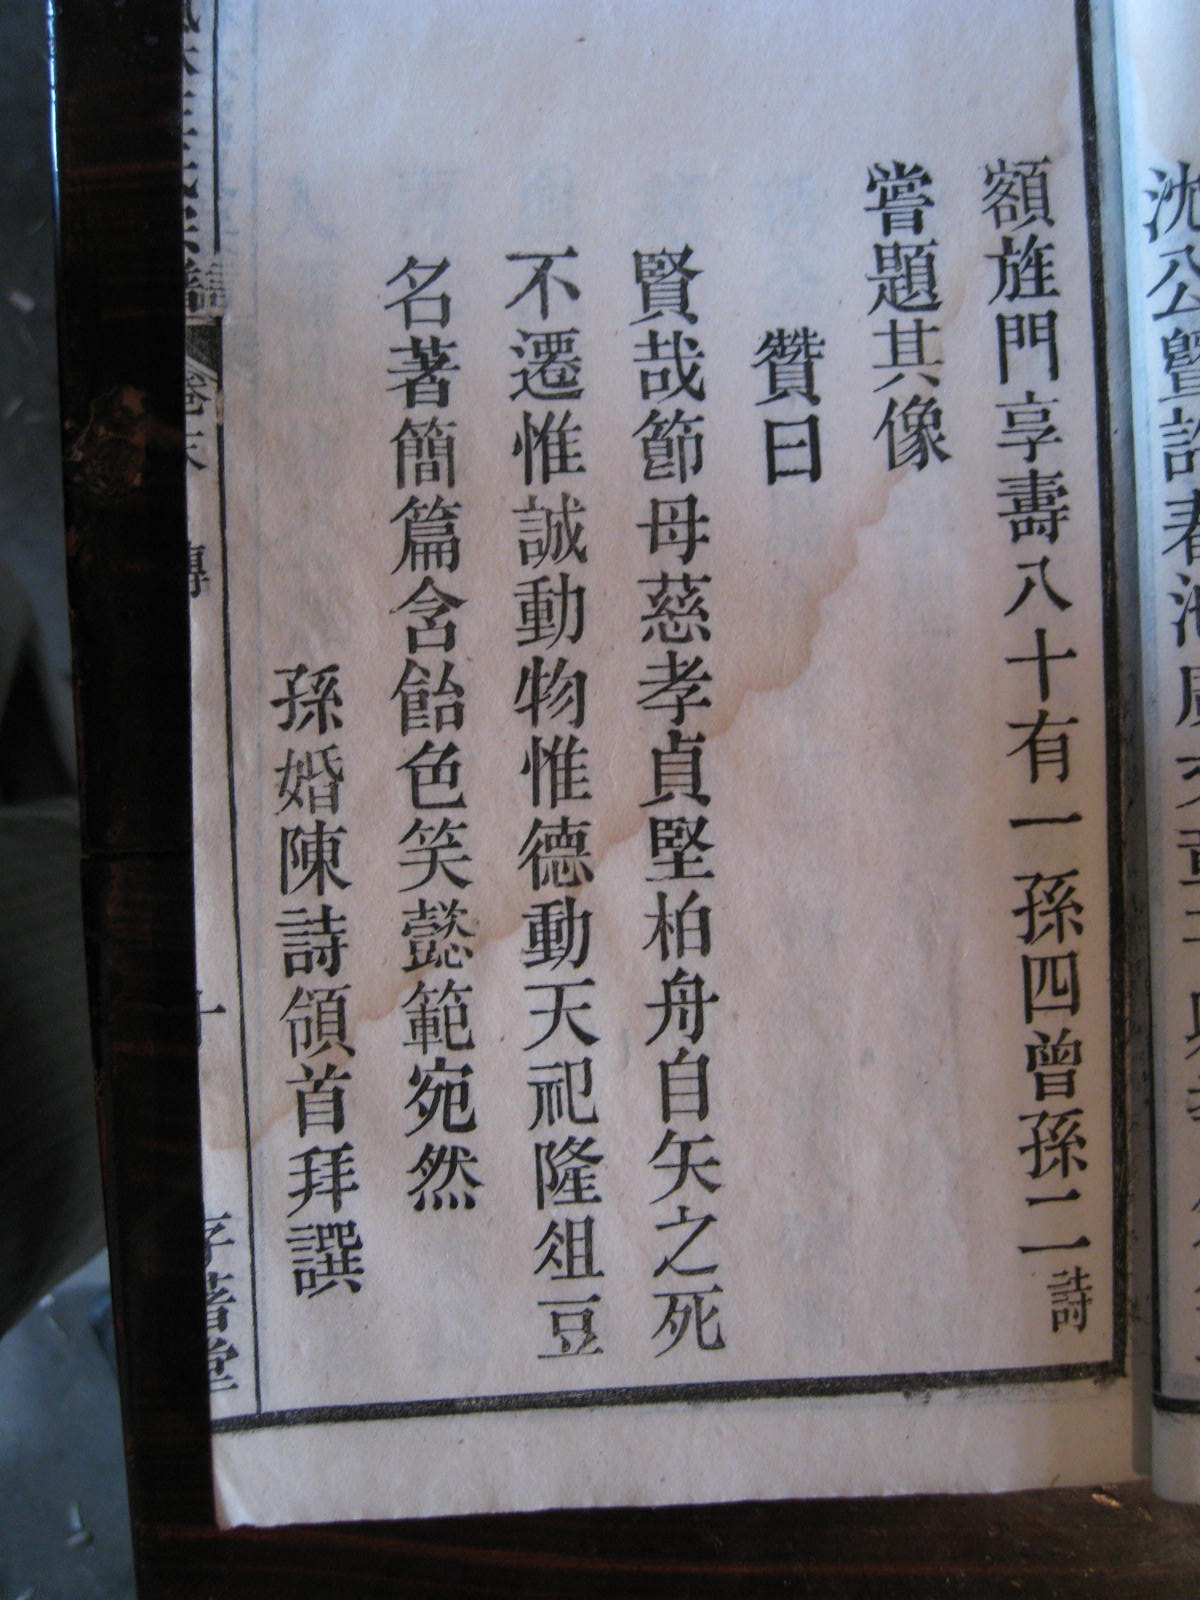 沈公
額旌門享壽八十有一孫四曾孫二詩
嘗題其像
贊曰
賢哉節母慈孝貞堅柏舟自矢之死
不遷惟誠動物惟德動天祀隆俎豆
名著簡篇含飴色笑懿範宛然
孫婿陳詩頜首拜譔
卷末 傳 十